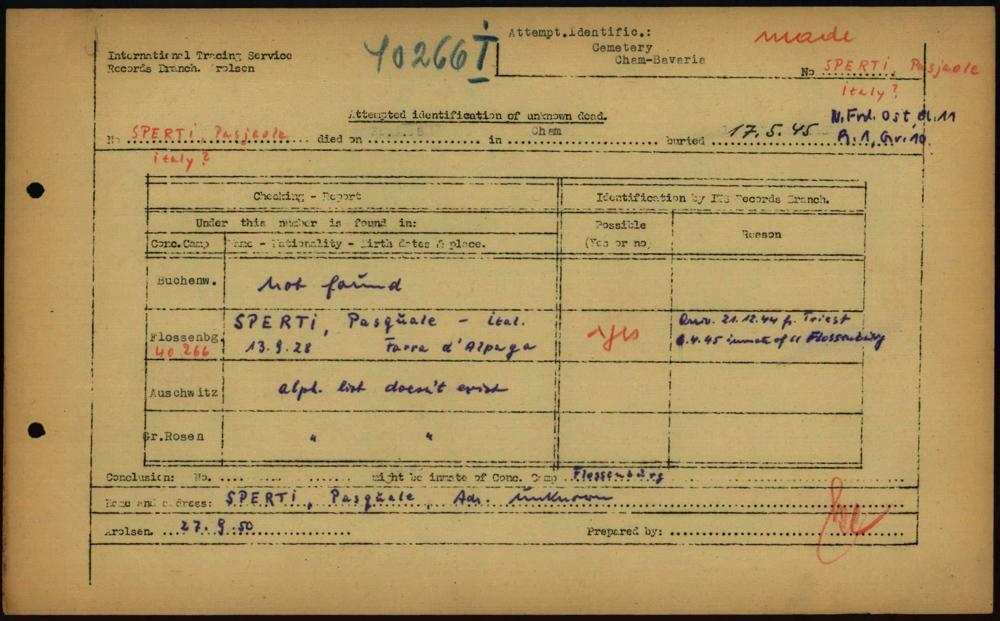 40266 I
Attempt.Identific.:
Cemetery
Cham-Bavaria
made
International Tracing Service
Records Branch. Arolsen
No SPERTI, Pasjaole
italy?
Attempted identification of unknown dead.
N. Frd. Ost Bl. 11
R. 1, Gr. 10
No SPERTI, Pasjaole died on in Cham buried 17.5.45
italy?
Checking - Report
Identification by ITS Records Branch.
Under this number is found in:
Possible
(Yes or no)
Reason
Conc.Camp
Name - Nationality - Birth dates & place.
Buchenw.
not found
Flossenbg.
40 266
SPERTI, Pasquale - ital.
13.9.28 Farra d'Alpaga
yes
21.12.44 f. Triest
.4.45 inmate of Flossenbürg
Auschwitz
alph. list doesn't exist
Gr.Rosen
" "
Conclusion: No. .... might be inmate of Conc. Camp Flossenbürg
Name and address: SPERTI, Pasquale, Adr. unknown
Arolsen. 27.9.50
Prepared by: